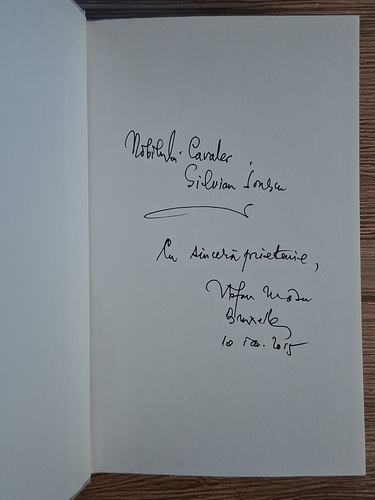 Nobilului Cavaler
Silvian Ionescu
Cu sinceră prietenie,
Bruxelles
10 2015